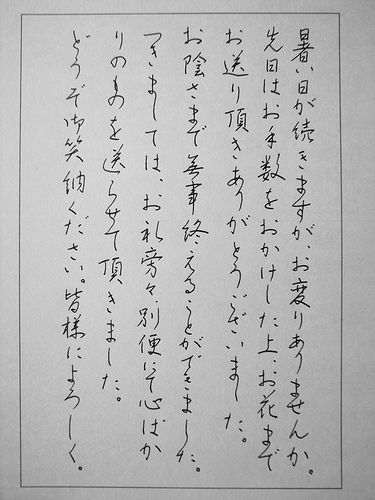 暑い日が続きますが、お変りありませんか。
先日はお手数をおかけした上、お花まで
お送り頂きありがとうございました。
お陰さまで無事終えることができました。
つきましては、お礼旁々、別便にて心ばか
りのものを送らせて頂きました。
どうぞ御笑納ください。皆様によろしく。